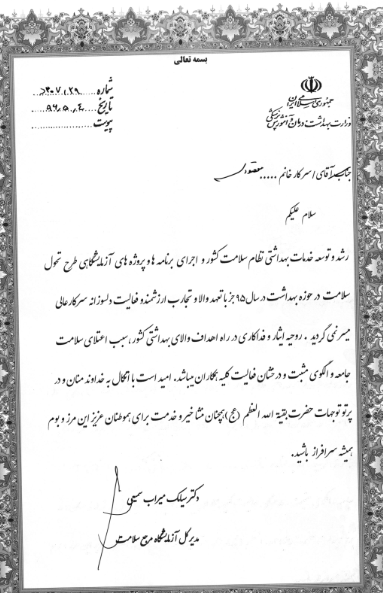 بسمه تعالی
جمهوری اسلامی ایران
وزارت بهداشت درمان و آموزش پزشکی
شماره
تاریخ ۹۶/۵/۴
پیوست
جناب آقای / سرکار خانم
سلام علیکم
رشد و توسعه خدمات بهداشتی نظام سلامت کشور و اجرای برنامه ها و پروژه های آزمایشگاهی طرح تحول
سلامت در حوزه بهداشت در سال ۹۵ جز با تعهد والا و تجارب ارزشمند و فعالیت دلسوزانه سرکار عالی
میسر نمی گردید . روحیه ایثار و فداکاری در راه اهداف والای بهداشتی کشور، سبب اعتلای سلامت
جامعه و الگوی مثبت و درخشان فعالیت کلیه همکاران میباشد. امید است با اتکال به خداوند منان و در
پرتو توجهات حضرت بقیة الله العظم (عج) همچنان منشا خیر و خدمت برای هموطنان عزیز این مرز و بوم
همیشه سرافراز باشید.
دکتر سیامک میراب سمیعی
مدیر کل آزمایشگاه مرجع سلامت